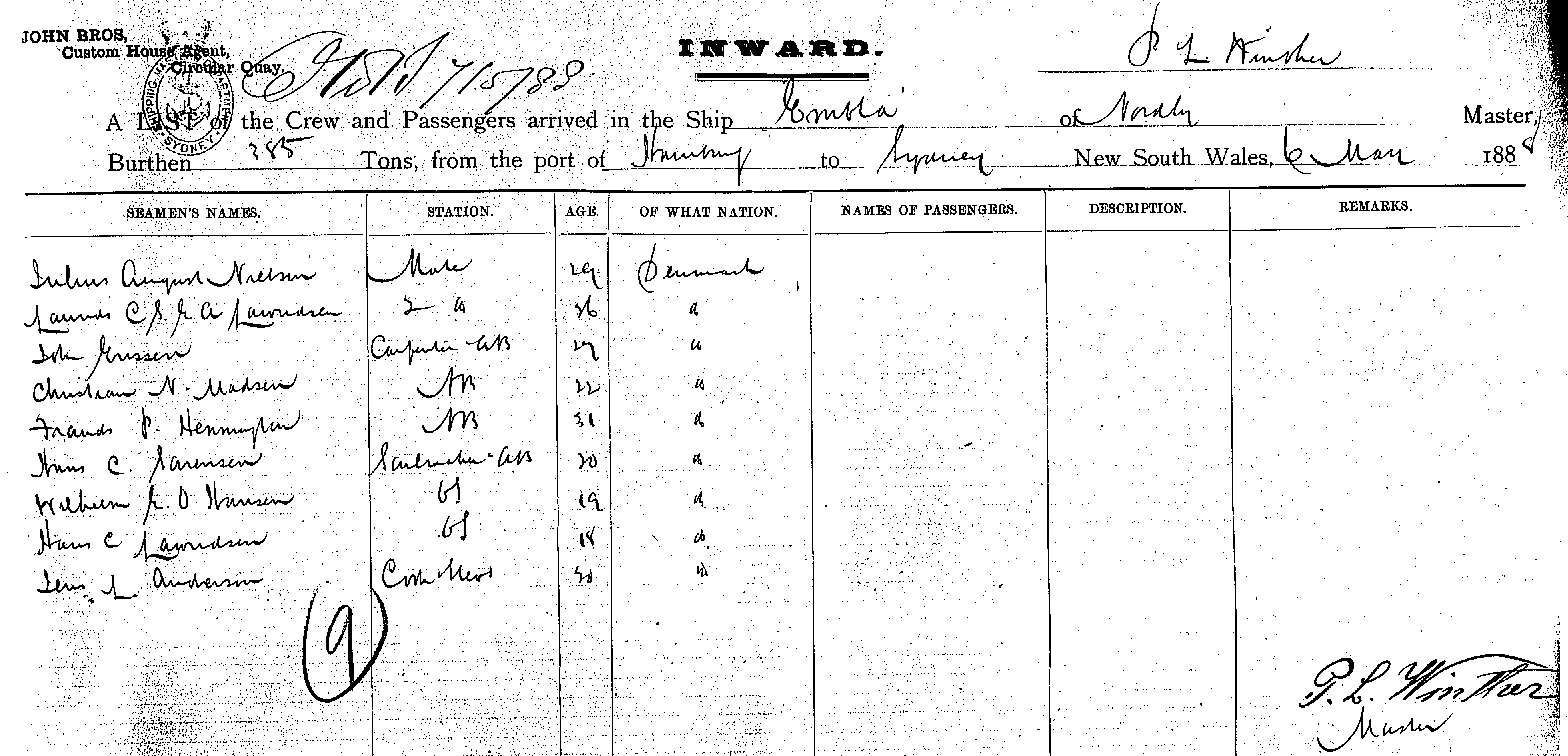 JOHN BROS,
Custom House Agent,
Circular Quay,
INWARD.
P L Winther
7/5/88
A LIST of the Crew and Passengers arrived in the Ship Embla of Nordby Master,
Burthen 285 Tons, from the port of Hamburg to Sydney New South Wales, 6 May 1888
SEAMEN'S NAMES. STATION. AGE. OF WHAT NATION. NAMES OF PASSENGERS. DESCRIPTION. REMARKS.
Julius August Nielsen Mate 29 Denmark
Laurids C S. E A Lauridsen 2 " 26 "
John Carpenter AB 27 "
Christian N. Madsen AB 22 "
Frands P. AB 31 "
Hans C. Sorensen Sailmaker AB 20 "
Wilhelm E. O Hansen OS 19 "
Hans C Lauridsen OS 18 "
Jens L Anderson Cook 30 "
9
P. L. Winther
Master